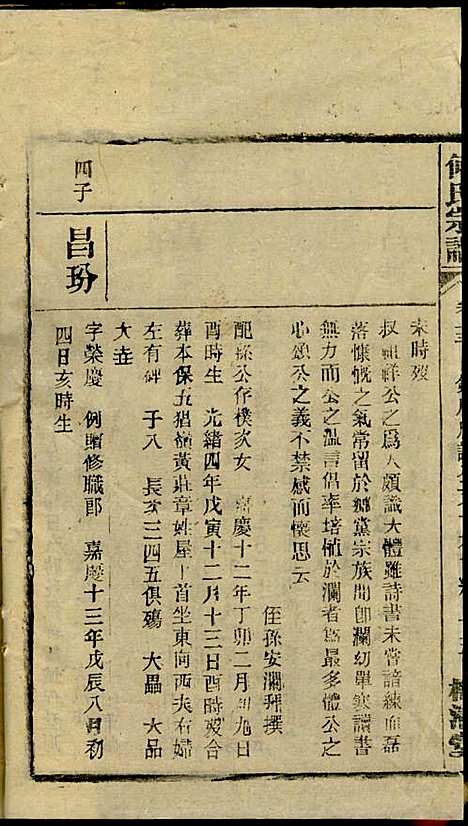 氏宗譜
未時歿
叔祖祥公之爲人頗識大體雖詩書未嘗諳練而磊
落慷慨之氣常留於鄉黨宗族間卽瀾幼單寒讀書
無力而公之溫言倡率培植於瀾者爲最多憶公之
心頌公之義不禁感而懷思云
侄孫安瀾拜撰
配孫公存樸次女 嘉慶十二年丁卯二月初九日
酉時生 光緒四年戊寅十二月十三日酉時歿合
葬本保五猖嶺黃莊章姓屋上首坐東向西夫右婦
左有碑 子八 長次三四五俱殤 大畾 大品
大垚
四子
昌玢
字榮慶 例贈修職郎 嘉慶十三年戊辰八月初
四日亥時生